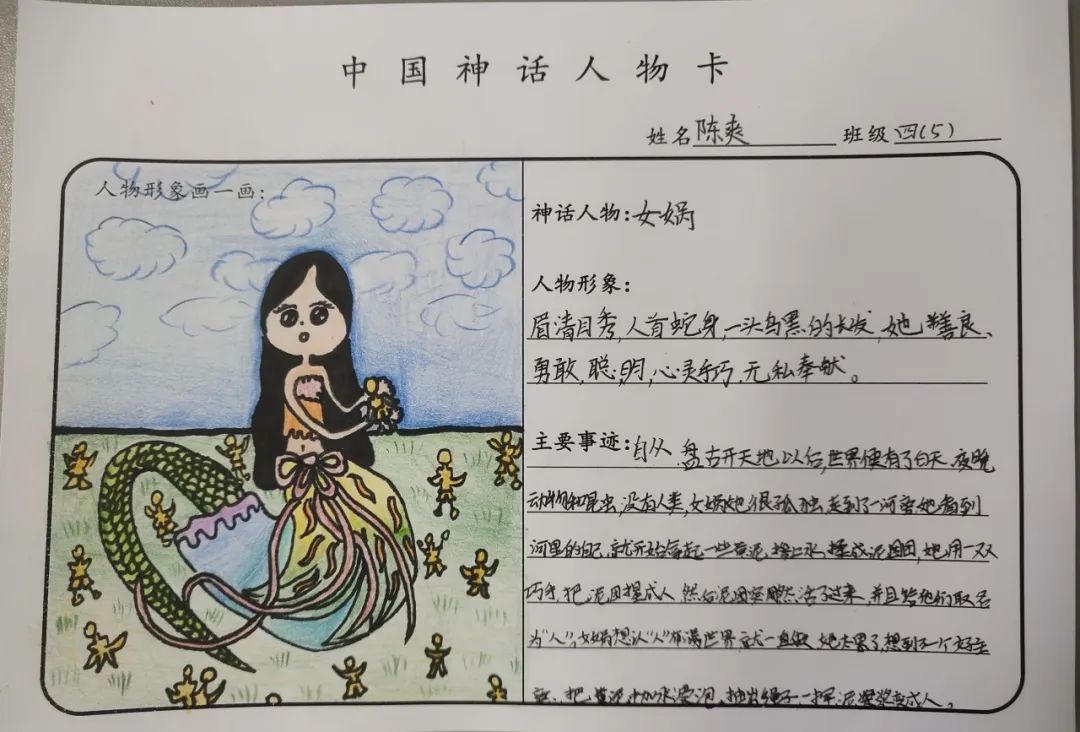 中国神话人物卡
姓名陈爽 班级四(5)
人物形象画一画:
神话人物:女娲
人物形象:
眉清目秀,人首蛇身,一头乌黑的长发,她善良、
勇敢,聪明,心灵手巧.无私奉献。
主要事迹:自从盘古开天地以后,世界便有了白天.夜晚
动物和昆虫,没有人类,女娲她很孤独,走到了一河旁她看到
河里的自己,就开始拿起一些黄泥,掺上水,揉成泥团,她用一双
巧手,把泥团捏成人,然后泥团突然活了过来,并且给他们取名
为“人”,女娲想让“人”布满世界,就一直做,她太累了,想到了一个好主
意,把黄泥加水,抽出绳子,一挥,泥浆变成人。